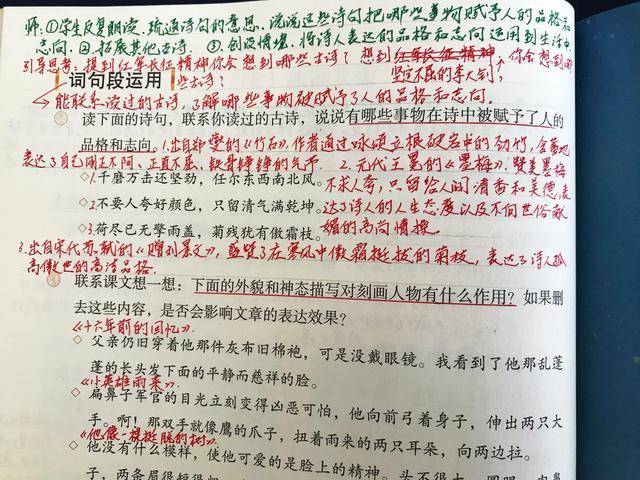 师:①学生反复朗读,疏通诗句的意思,说说这些诗句把哪些事物赋予人的品格和
志向。②.拓展其他古诗。③.创设情境,将诗人表达的品格和志向运用到生活中
引导思考:提到红军长征精神你会想到哪些古诗?想到红军长征精神,你会想到哪
词句段运用 些古诗? 坚定不屈的李大钊,
能联系读过的古诗,了解哪些事物被赋予了人的品格和志向。
读下面的诗句,联系你读过的古诗,说说有哪些事物在诗中被赋予了人的
品格和志向。1.出自郑燮的《竹石》,作者通过咏颂立根破岩中的劲竹,含蓄地
表达了自己刚正不阿、正直不屈、铁骨铮铮的气节 2.元代王冕的《墨梅》,赞美墨梅
◇1.千磨万击还坚劲,任尔东西南北风。不求人夸,只留给人间清香和美德,表
◇2.不要人夸好颜色,只留清气满乾坤。达了诗人的人生态度以及不向世俗献
◇3.荷尽已无擎雨盖,菊残犹有傲霜枝。媚的高尚情操。
3.出自宋代苏轼的《赠刘景文》,盛赞了在寒风中傲霜挺拔的菊枝,表达了诗人孤
高傲世的高洁品格.
联系课文想一想:下面的外貌和神态描写对刻画人物有什么作用?如果删
去这些内容,是否会影响文章的表达效果?
《十六年前的回忆》
◇ 父亲仍旧穿着他那件灰布旧棉袍,可是没戴眼镜。我看到了他那乱蓬
蓬的长头发下面的平静而慈祥的脸。
《小英雄雨来》
◇ 扁鼻子军官的目光立刻变得凶恶可怕,他向前弓着身子,伸出两只大
手。啊!那双手就像鹰的爪子,扭着雨来的两只耳朵,向两边拉。
《他像一棵挺脱的树》
◇ 他没有什么模样,使他可爱的是脸上的精神。头不很大,圆眼,肉鼻
子,两条眉很短很粗